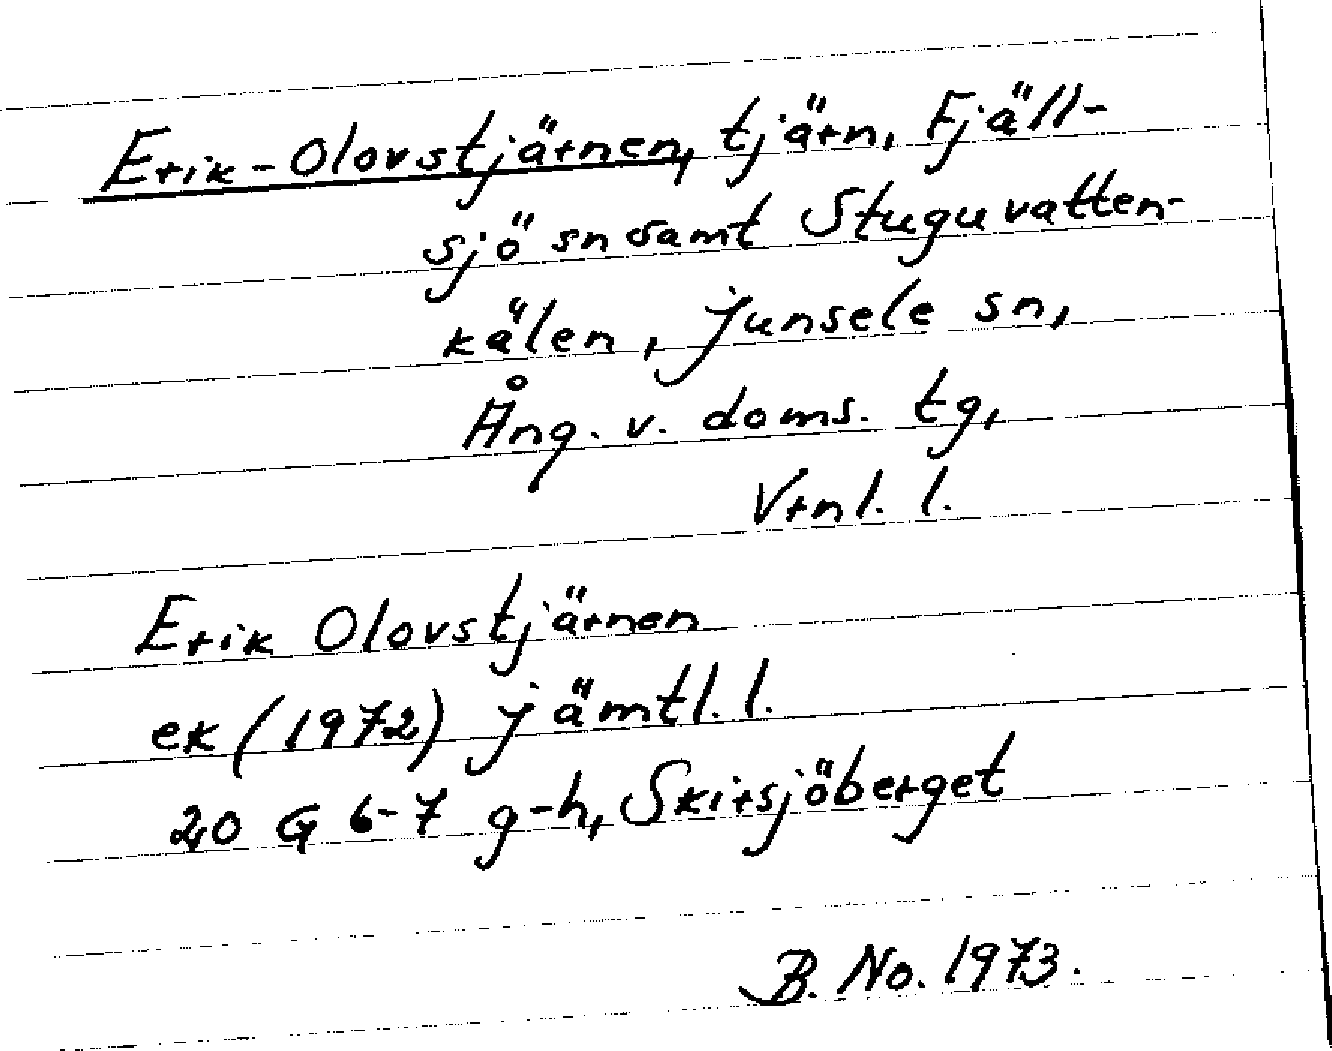 Erik-Olovstjärnen, tjärn, Fjäll-
sjö sn samt Stuguvatten-
kälen, Junsele sn,
Ång. v. doms. tg,
Vrnl. l.
Erik Olovstjärnen
ek (1972) Jämtl. l.
20 G 6-7 g-h, Skirsjöberget
B. No. 1973.